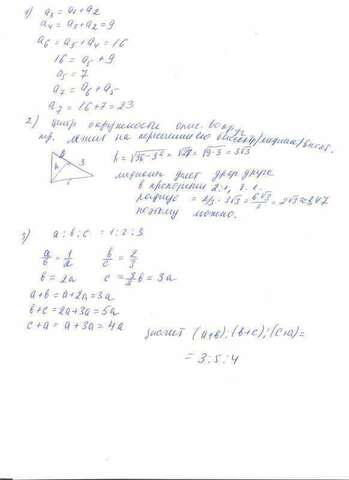 1) a₃ = a₁ + a₂
a₄ = a₃ + a₂ = 9
a₆ = a₅ + a₄ = 16
16 = a₅ + 9
a₅ = 7
a₇ = a₆ + a₅
a₇ = 16 + 7 = 23
2) Центр окружности опис. вокруг
тр. лежит на пересечении его высот/медиан/
h 3
h = √36-3² = √27 = √9·3 = 3√3
медианы делят друг друга
в пропорции 2:1,
радиус = 2/3 · 3√3 = 6√3/3 = 2√3 ≈ 3,47
поэтому можно.
3) a : b : c = 1 : 2 : 3
a/b = 1/2 b/c = 2/3
b = 2a c = 3/2 b = 3a
a+b = a+2a = 3a
b+c = 2a+3a = 5a
c+a = a+3a = 4a
значит (a+b) : (b+c) : (c+a) =
= 3 : 5 : 4